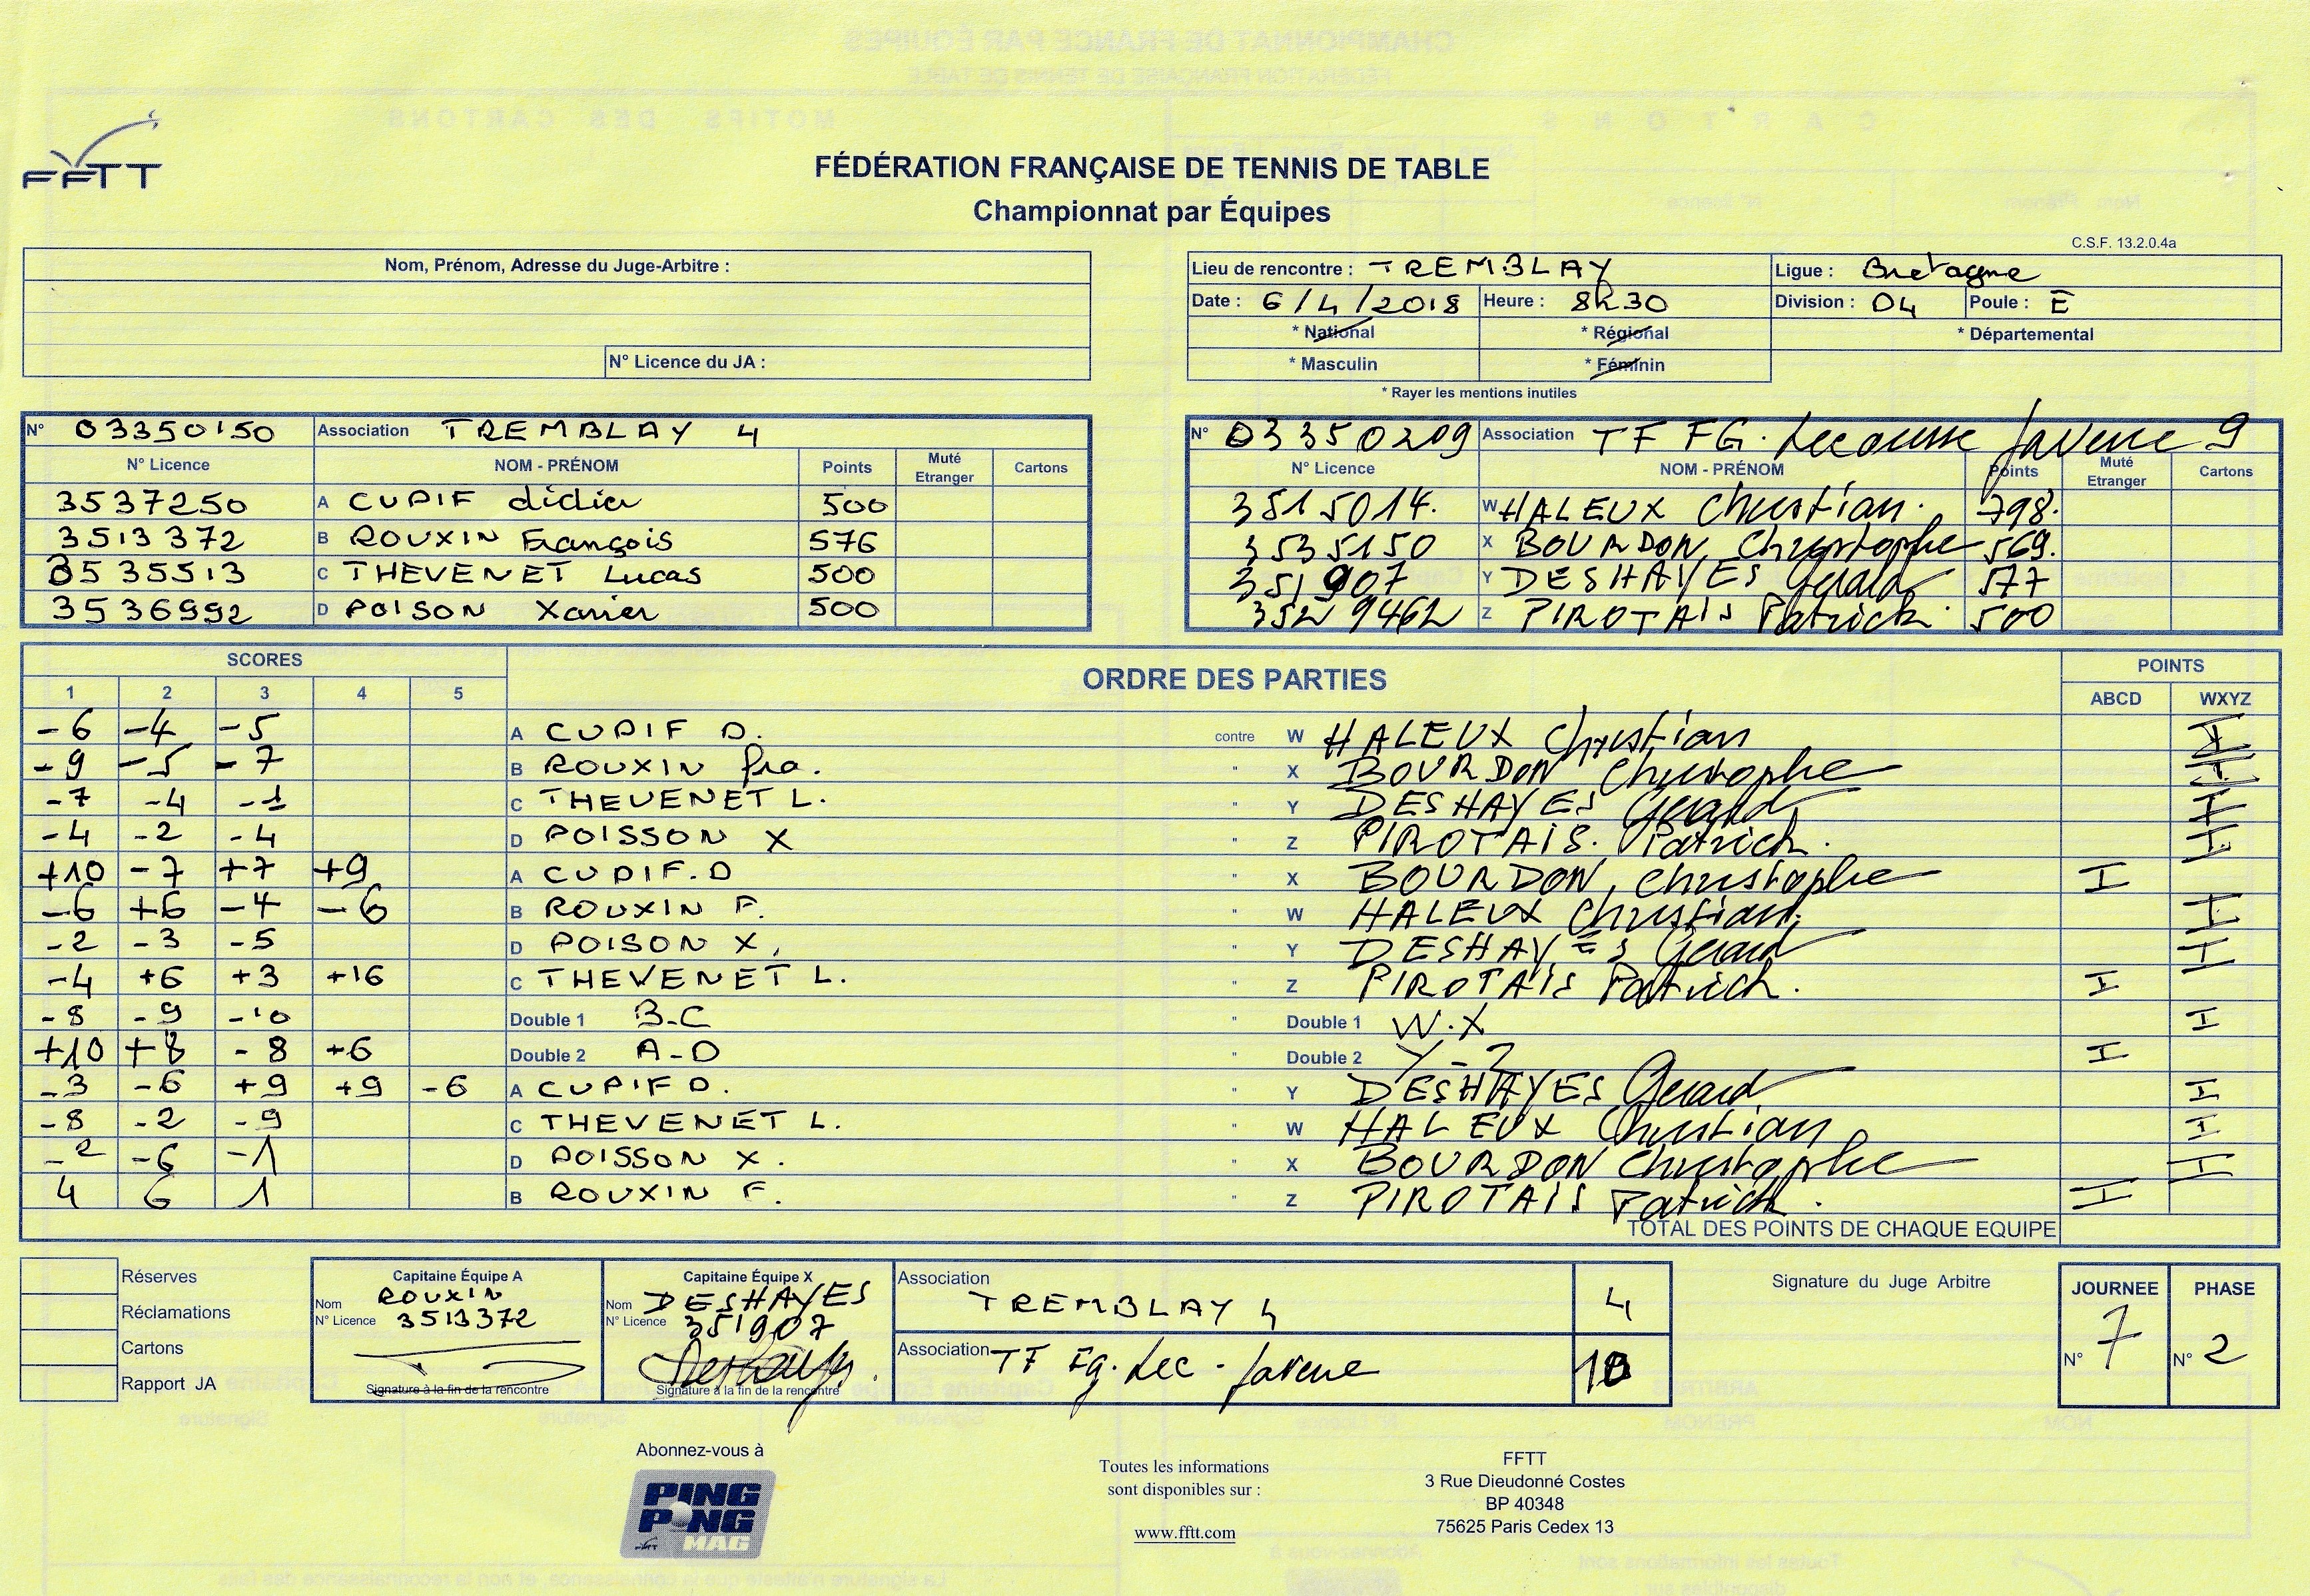 FFTT
FÉDÉRATION FRANÇAISE DE TENNIS DE TABLE
Championnat par Équipes
C.S.F. 13.2.0.4a
Nom, Prénom, Adresse du Juge-Arbitre :
N° Licence du JA :
Lieu de rencontre : TREMBLAY Ligue : Bretagne
Date : 6/4/2018 Heure : 8h30 Division : D4 Poule : E
* National * Régional * Départemental
* Masculin * Féminin
* Rayer les mentions inutiles
N° 03350150 Association TREMBLAY 4
N° Licence NOM - PRÉNOM Points Muté Etranger Cartons
3537250 A CUPIF didier 500
3513372 B ROUXIN François 576
3535513 C THEVENET Lucas 500
3536992 D POISON Xavier 500
N° 03350209 Association TF FG. Lecousse Javene 9
N° Licence NOM - PRÉNOM Points Muté Etranger Cartons
3515014. W HALEUX Christian. 798.
3535150 X BOURDON Christophe 569.
351907 Y DESHAYES Gérard 577
3529462 Z PIROTAIS Patrick 500
SCORES ORDRE DES PARTIES POINTS
1 2 3 4 5 ABCD WXYZ
-6 -4 -5 A CUPIF D. contre W HALEUX Christian I
-9 -5 -7 B ROUXIN fra. " X BOURDON Christophe I
-7 -4 -1 C THEVENET L. " Y DESHAYES Gérard I
-4 -2 -4 D POISSON X " Z PIROTAIS. Patrick. I
+10 -7 +7 +9 A CUPIF.D " X BOURDON, Christophe I
-6 +6 -4 -6 B ROUXIN F. " W HALEUX Christian. I
-2 -3 -5 D POISON X. " Y DESHAYES Gérard I
-4 +6 +3 +16 C THEVENET L. " Z PIROTAIS Patrick. I
-8 -9 -10 Double 1 B-C " Double 1 W.X I
+10 +8 -8 +6 Double 2 A-D " Double 2 Y-Z I
-3 -6 +9 +9 -6 A CUPIF D. " Y DESHAYES Gérard I
-8 -2 -9 C THEVENET L. " W HALEUX Christian I
-2 -6 -1 D POISSON X. " X BOURDON Christophe I
4 6 1 B ROUXIN F. " Z PIROTAIS Patrick. I
TOTAL DES POINTS DE CHAQUE EQUIPE
Réserves
Réclamations
Cartons
Rapport JA
Capitaine Équipe A
Nom ROUXIN
N° Licence 3513372
Signature à la fin de la rencontre
Capitaine Équipe X
Nom DESHAYES
N° Licence 351907
Deshayes
Signature à la fin de la rencontre
Association TREMBLAY 4 4
Association TF Fg. Lec - Javene 10
Signature du Juge Arbitre
JOURNEE PHASE
N° 7 N° 2
Abonnez-vous à
PING PONG MAG
Toutes les informations
sont disponibles sur :
www.fftt.com
FFTT
3 Rue Dieudonné Costes
BP 40348
75625 Paris Cedex 13